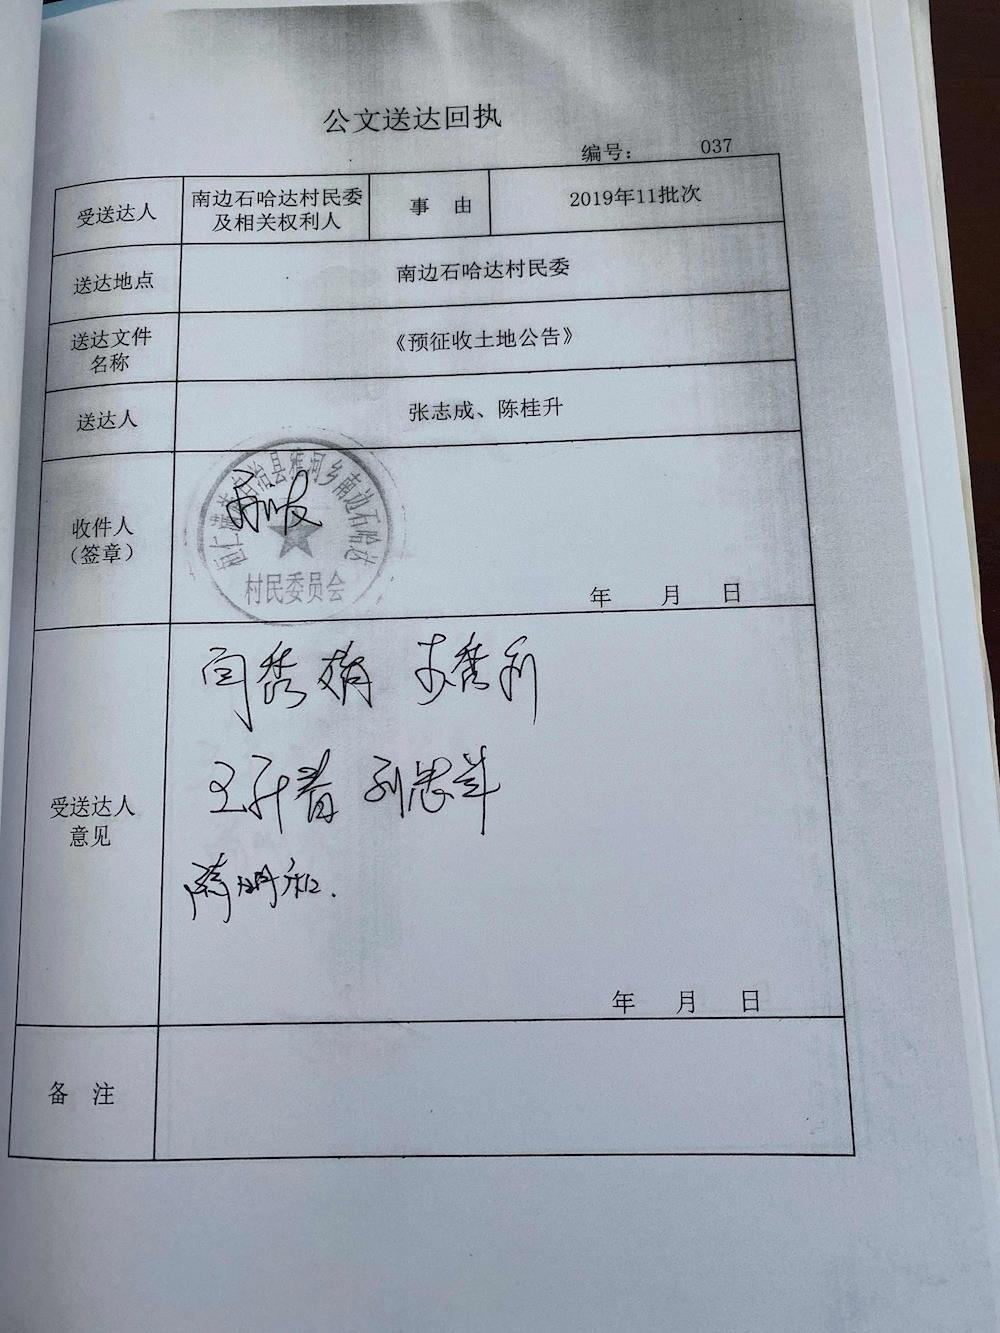 公文送达回执
编号： 037
受送达人
南边石哈达村民委
及相关权利人
事 由
2019年11批次
送达地点
南边石哈达村民委
送达文件
名称
《预征收土地公告》
送达人
张志成、陈桂升
收件人
（签章）
自治县雅河乡南边石哈达
村民委员会
年 月 日
受送达人
意见
闫秀娟 李秀利
王升青
年 月 日
备 注